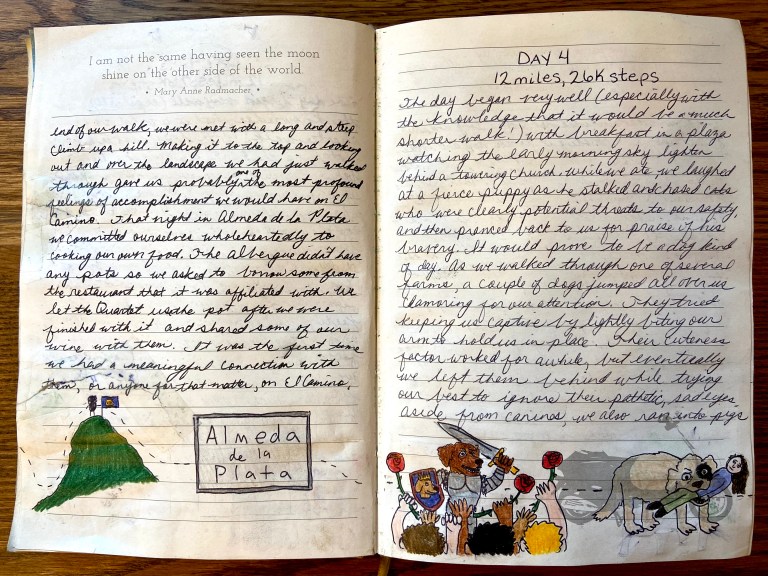 I am not the same having seen the moon
shine on the other side of the world.
• Mary Anne Radmacher •
end of our walk, we were met with a long and steep
climb up a hill. Making it to the top and looking
out and over the landscape we had just walked
through gave us probably one of the most profound
feelings of accomplishment we would have on El
Camino. That night in Almeda de la Plata
we committed ourselves wholeheartedly to
cooking our own food. The albergue didn't have
any pots so we asked to borrow some from
the restaurant that it was affiliated with. We
let the Quartet use the pot after we were
finished with it and shared some of our
wine with them. It was the first time
we had a meaningful connection with
them, or anyone for that matter, on El Camino.
Almeda
de la
Plata
DAY 4
12 miles, 26K steps
The day began very well (especially with
the knowledge that it would be a much
shorter walk!) with breakfast in a plaza
watching the early morning sky lighten
behind a towering church. While we ate we laughed
at a fierce puppy as he stalked and chased cats
who were clearly potential threats to our safety,
and then pranced back to us for praise of his
bravery. It would prove to be a dog kind
of day. As we walked through one of several
farms, a couple of dogs jumped all over us
clamoring for our attention. They tried
keeping us captive by lightly biting our
arm to hold us in place. Their cuteness
factor worked for awhile, but eventually
we left them behind while trying
our best to ignore their pathetic, sad eyes
aside from canines, we also ran into pigs